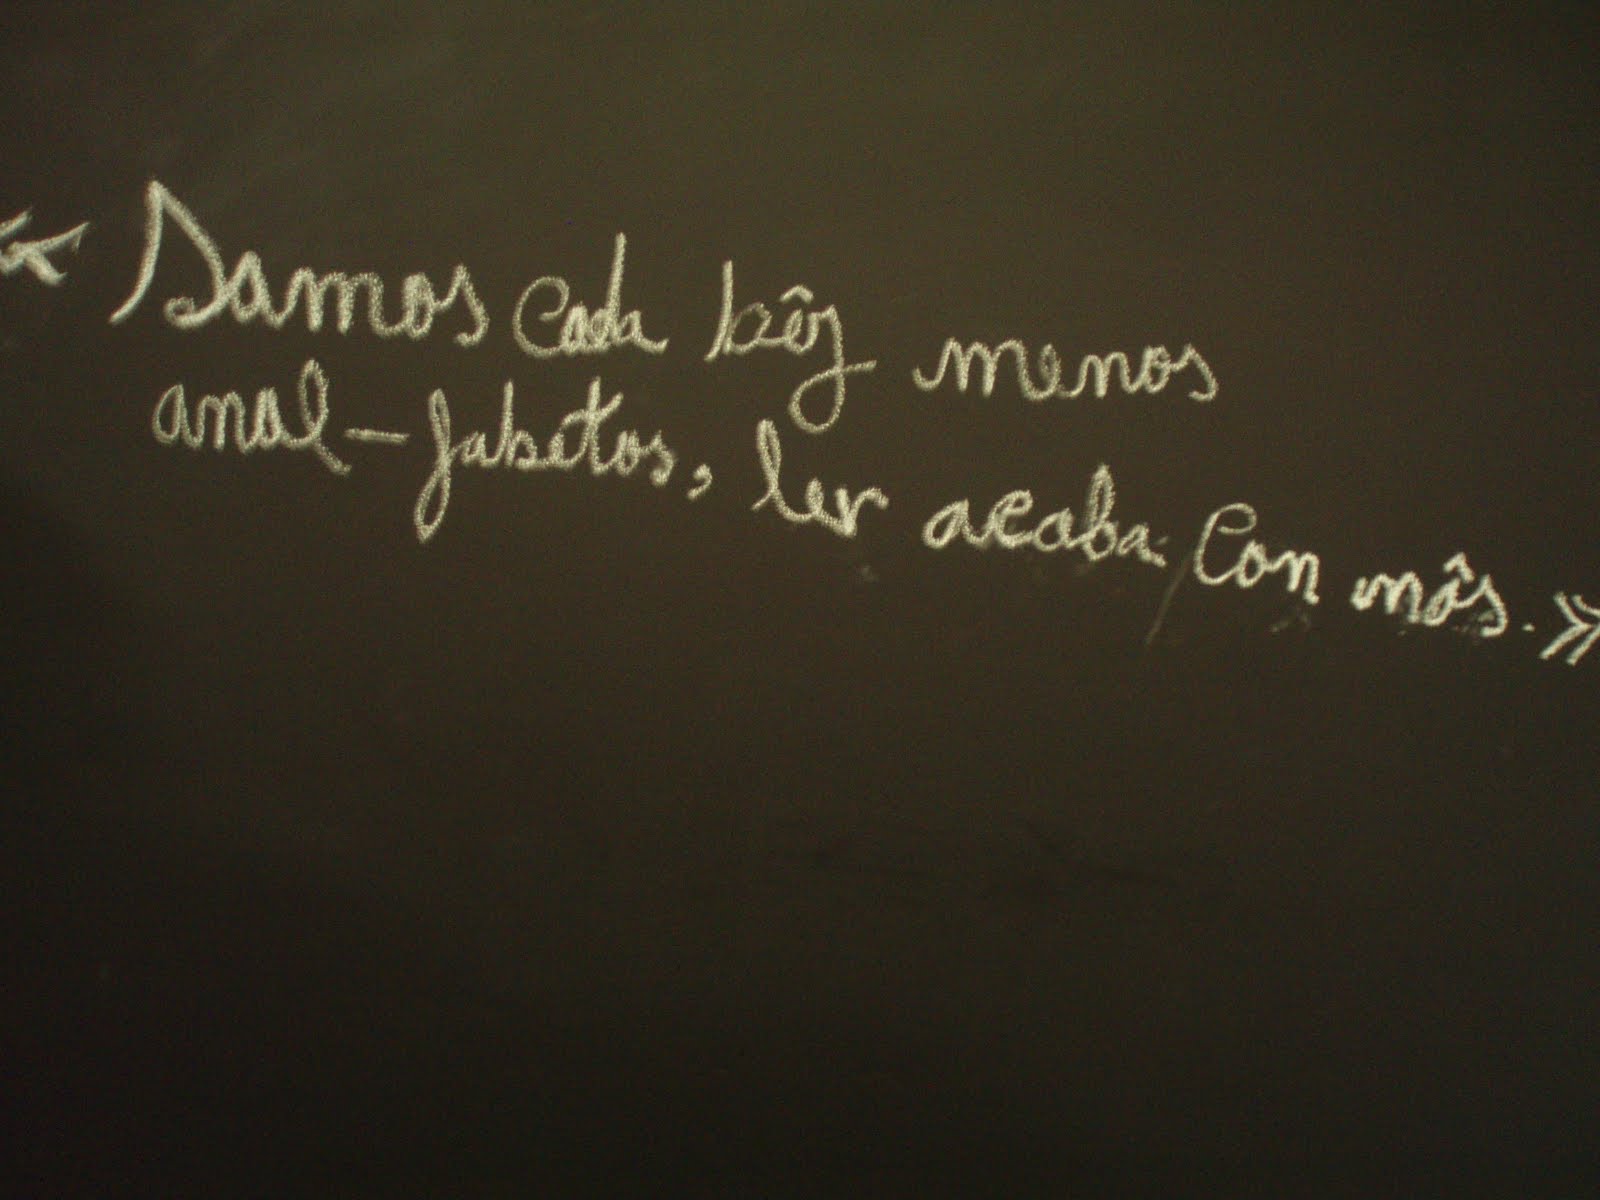 « Samos cada bêz menos
anal-fabetos, ler acaba con nôs. »